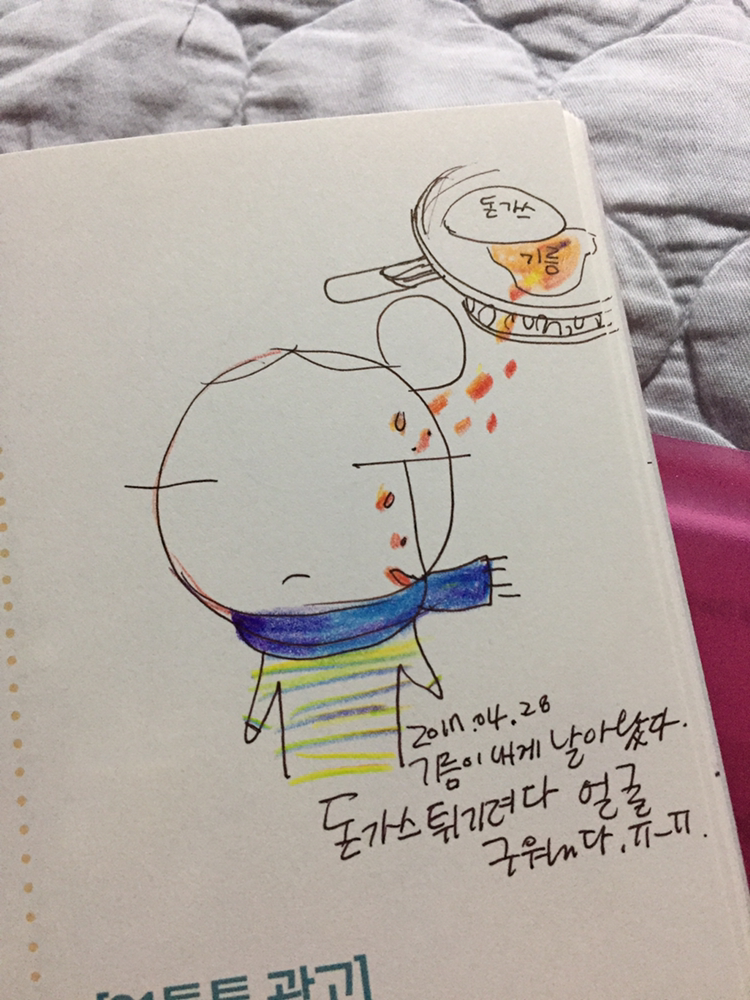 돈가쓰
기름
2017.04.28
기름이 내게 날아왔다.
돈가스 튀기려다 얼굴
구워ㅆ다.ㅠ_ㅠ.
광고]